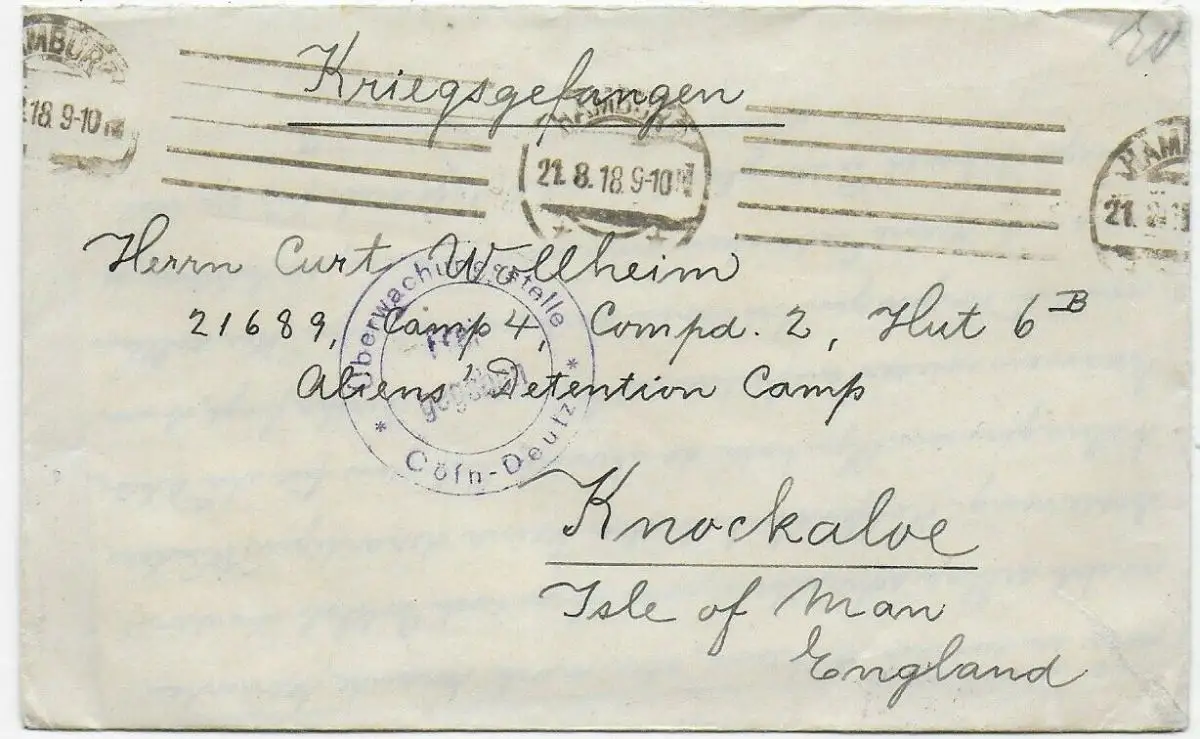 Kriegsgefangen
HAMBURG
.18. 9-10 N
HAMBURG
21. 8. 18. 9-10 N
HAM
21. 8. 18
Herrn Curt Wollheim
21689, Camp 4, Compd. 2, Hut 6 B
Aliens' Detention Camp
Knockaloe
Isle of Man
England
Überwachungsstelle
Frei
gegeben
* Cöln-Deutz *